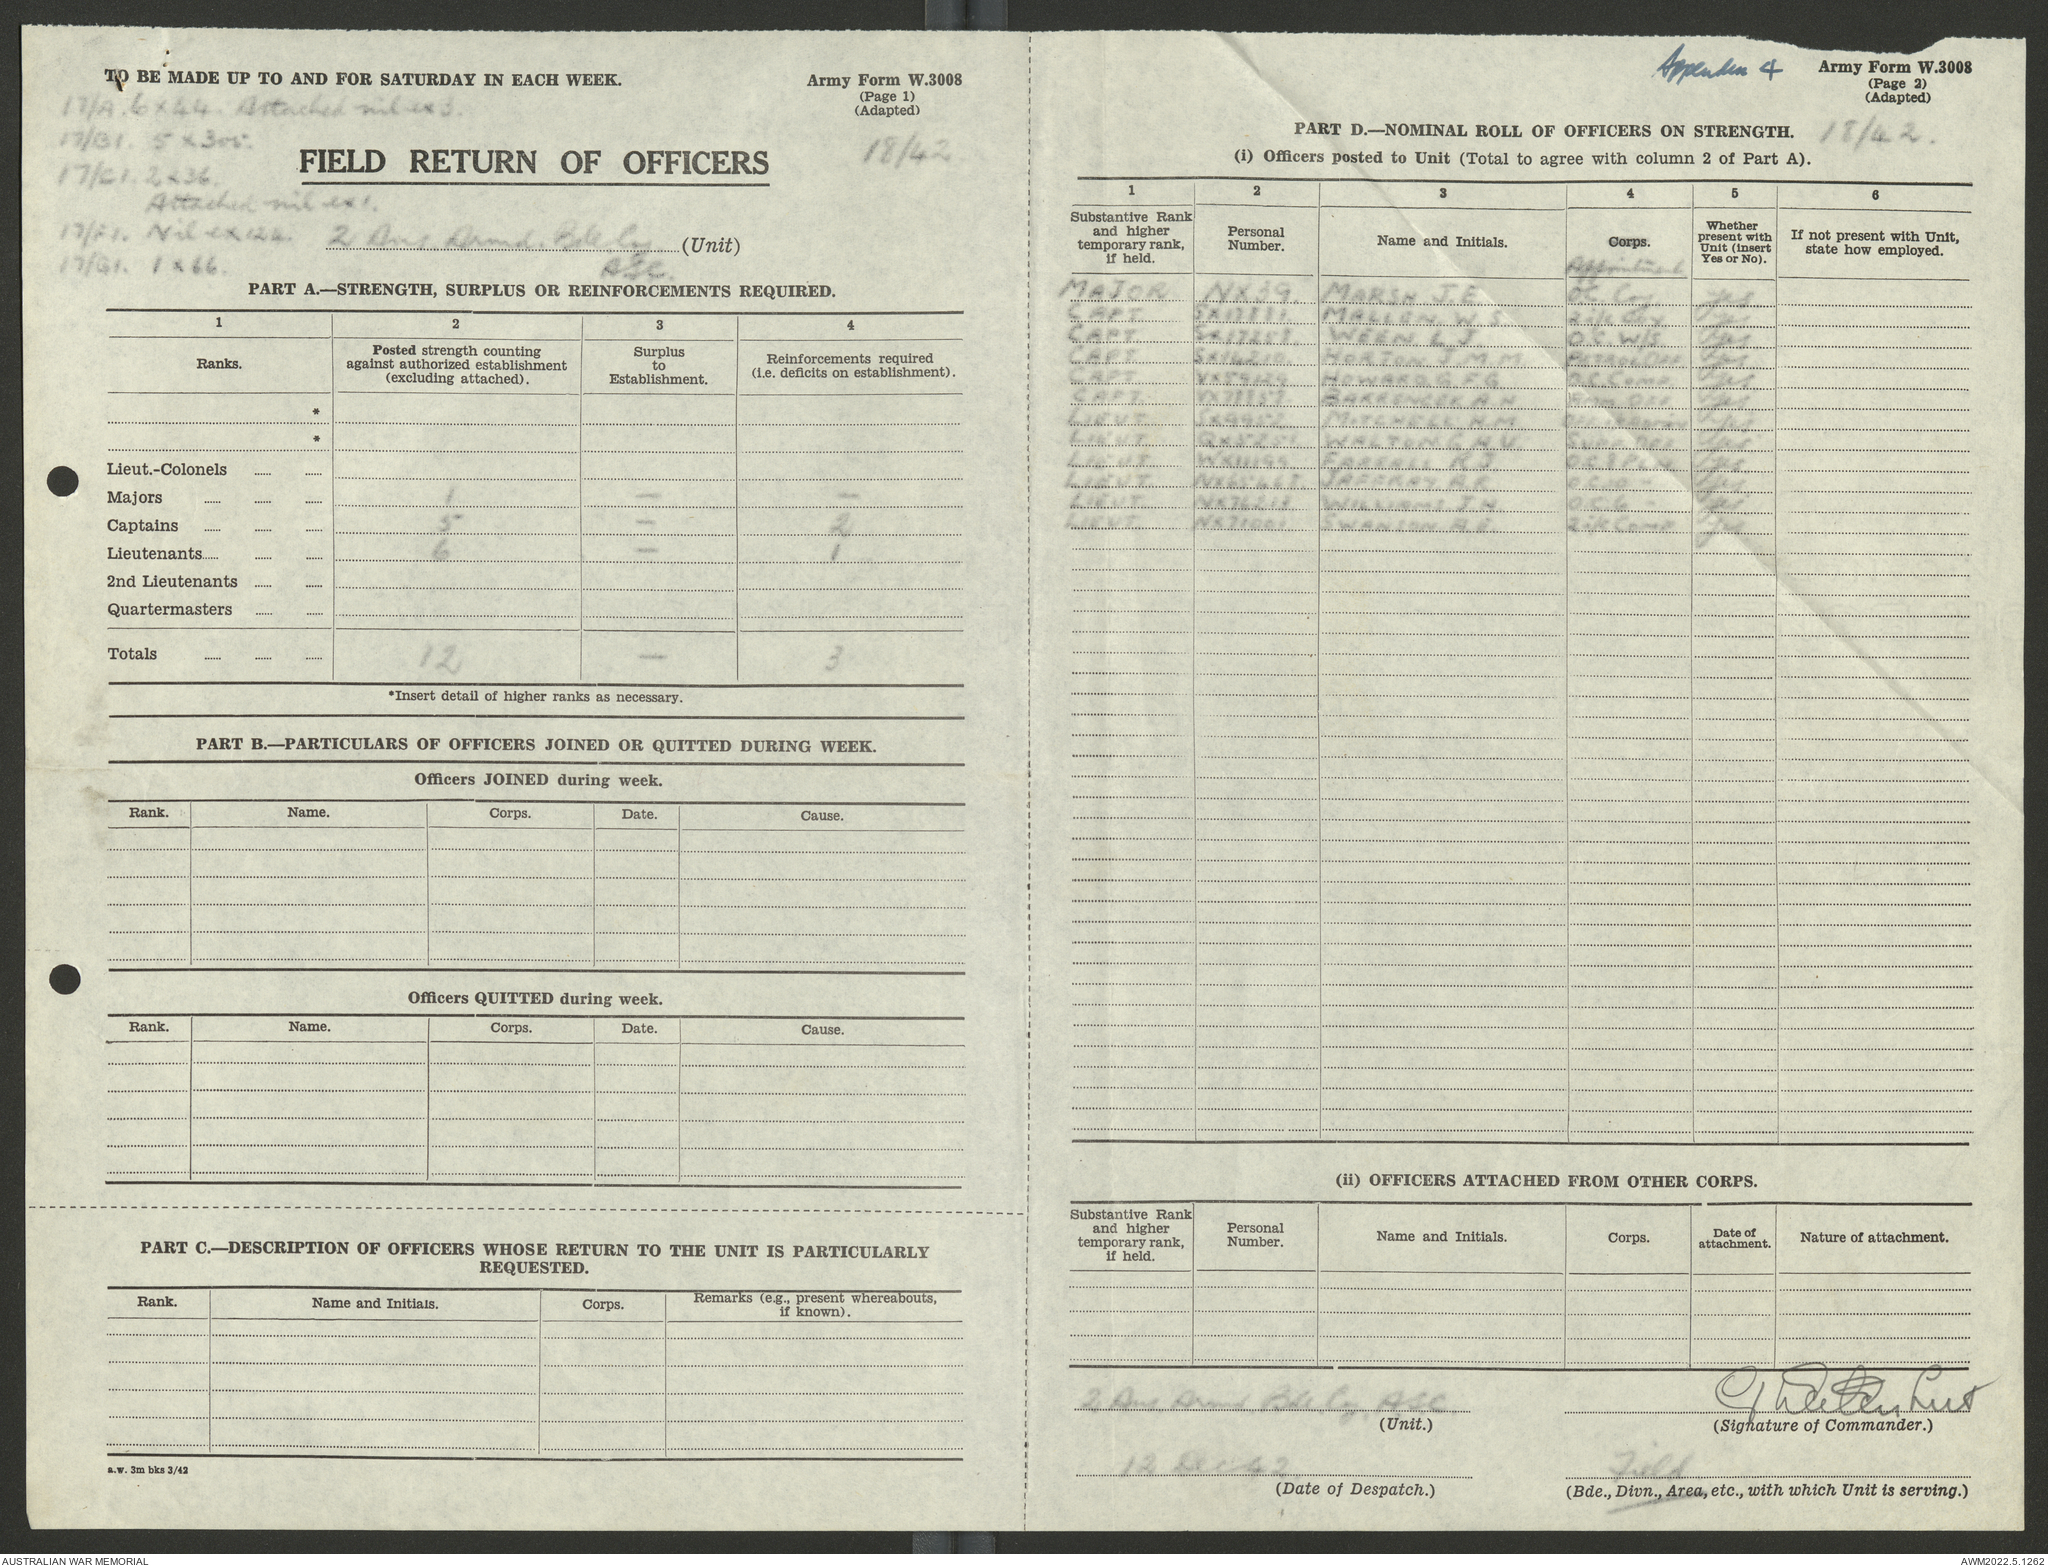 TO BE MADE UP TO AND FOR SATURDAY IN EACH WEEK.
Army Form W.3008
(Page 1)
(Adapted)
17/A. 6 x 44. Attached nil ex 3.
17/B1. 5 x 305.
18/42
FIELD RETURN OF OFFICERS
17/C1. 2 x 36.
Attached nil ex 1.
17/F1. Nil ex 124.
2 Aus Armd. Bde Coy (Unit)
ASC.
17/G1. 1 x 66.
PART A.—STRENGTH, SURPLUS OR REINFORCEMENTS REQUIRED.
1 2 3 4
Ranks. Posted strength counting against authorized establishment (excluding attached). Surplus to Establishment. Reinforcements required (i.e. deficits on establishment).
*
*
Lieut.-Colonels
Majors 1 — —
Captains 5 — 2
Lieutenants 6 — 1
2nd Lieutenants
Quartermasters
Totals 12 — 3
*Insert detail of higher ranks as necessary.
PART B.—PARTICULARS OF OFFICERS JOINED OR QUITTED DURING WEEK.
Officers JOINED during week.
Rank. Name. Corps. Date. Cause.
Officers QUITTED during week.
Rank. Name. Corps. Date. Cause.
PART C.—DESCRIPTION OF OFFICERS WHOSE RETURN TO THE UNIT IS PARTICULARLY
REQUESTED.
Rank. Name and Initials. Corps. Remarks (e.g., present whereabouts, if known).
a.w. 3m bks 3/42
Appendix 4
Army Form W.3008
(Page 2)
(Adapted)
PART D.—NOMINAL ROLL OF OFFICERS ON STRENGTH.
18/42.
(i) Officers posted to Unit (Total to agree with column 2 of Part A).
1 2 3 4 5 6
Substantive Rank and higher temporary rank, if held. Personal Number. Name and Initials. Corps. Whether present with Unit (insert Yes or No). If not present with Unit, state how employed.
Appointment
MAJOR NX39. MARSH J.E. OC Coy Yes
CAPT MALLEN W.S. Yes
CAPT WEEN L.J. O.C. W/S Yes
CAPT HORTON J.M.M. PETROL OFF Yes
CAPT HOWARD G.F.G. O.C. Comp Yes
CAPT BARRENGER A.N. Yes
LIEUT MITCHELL H.M. Yes
LIEUT WALTON G.H.V. SUPP. OFF Yes
LIEUT FARRALL R.J. Yes
LIEUT JAFFRAY A.R. Yes
LIEUT WILLIAMS J.H. O.C. 6 " Yes
LIEUT NX71001 SWANSON A.E. 2 i/c Comp Yes
(ii) OFFICERS ATTACHED FROM OTHER CORPS.
Substantive Rank and higher temporary rank, if held. Personal Number. Name and Initials. Corps. Date of attachment. Nature of attachment.
2 Aus Armd Bde Coy. ASC
(Unit.)
(Signature of Commander.)
12 Dec 42
(Date of Despatch.)
Field
(Bde., Divn., Area, etc., with which Unit is serving.)
AUSTRALIAN WAR MEMORIAL
AWM2022.5.1262